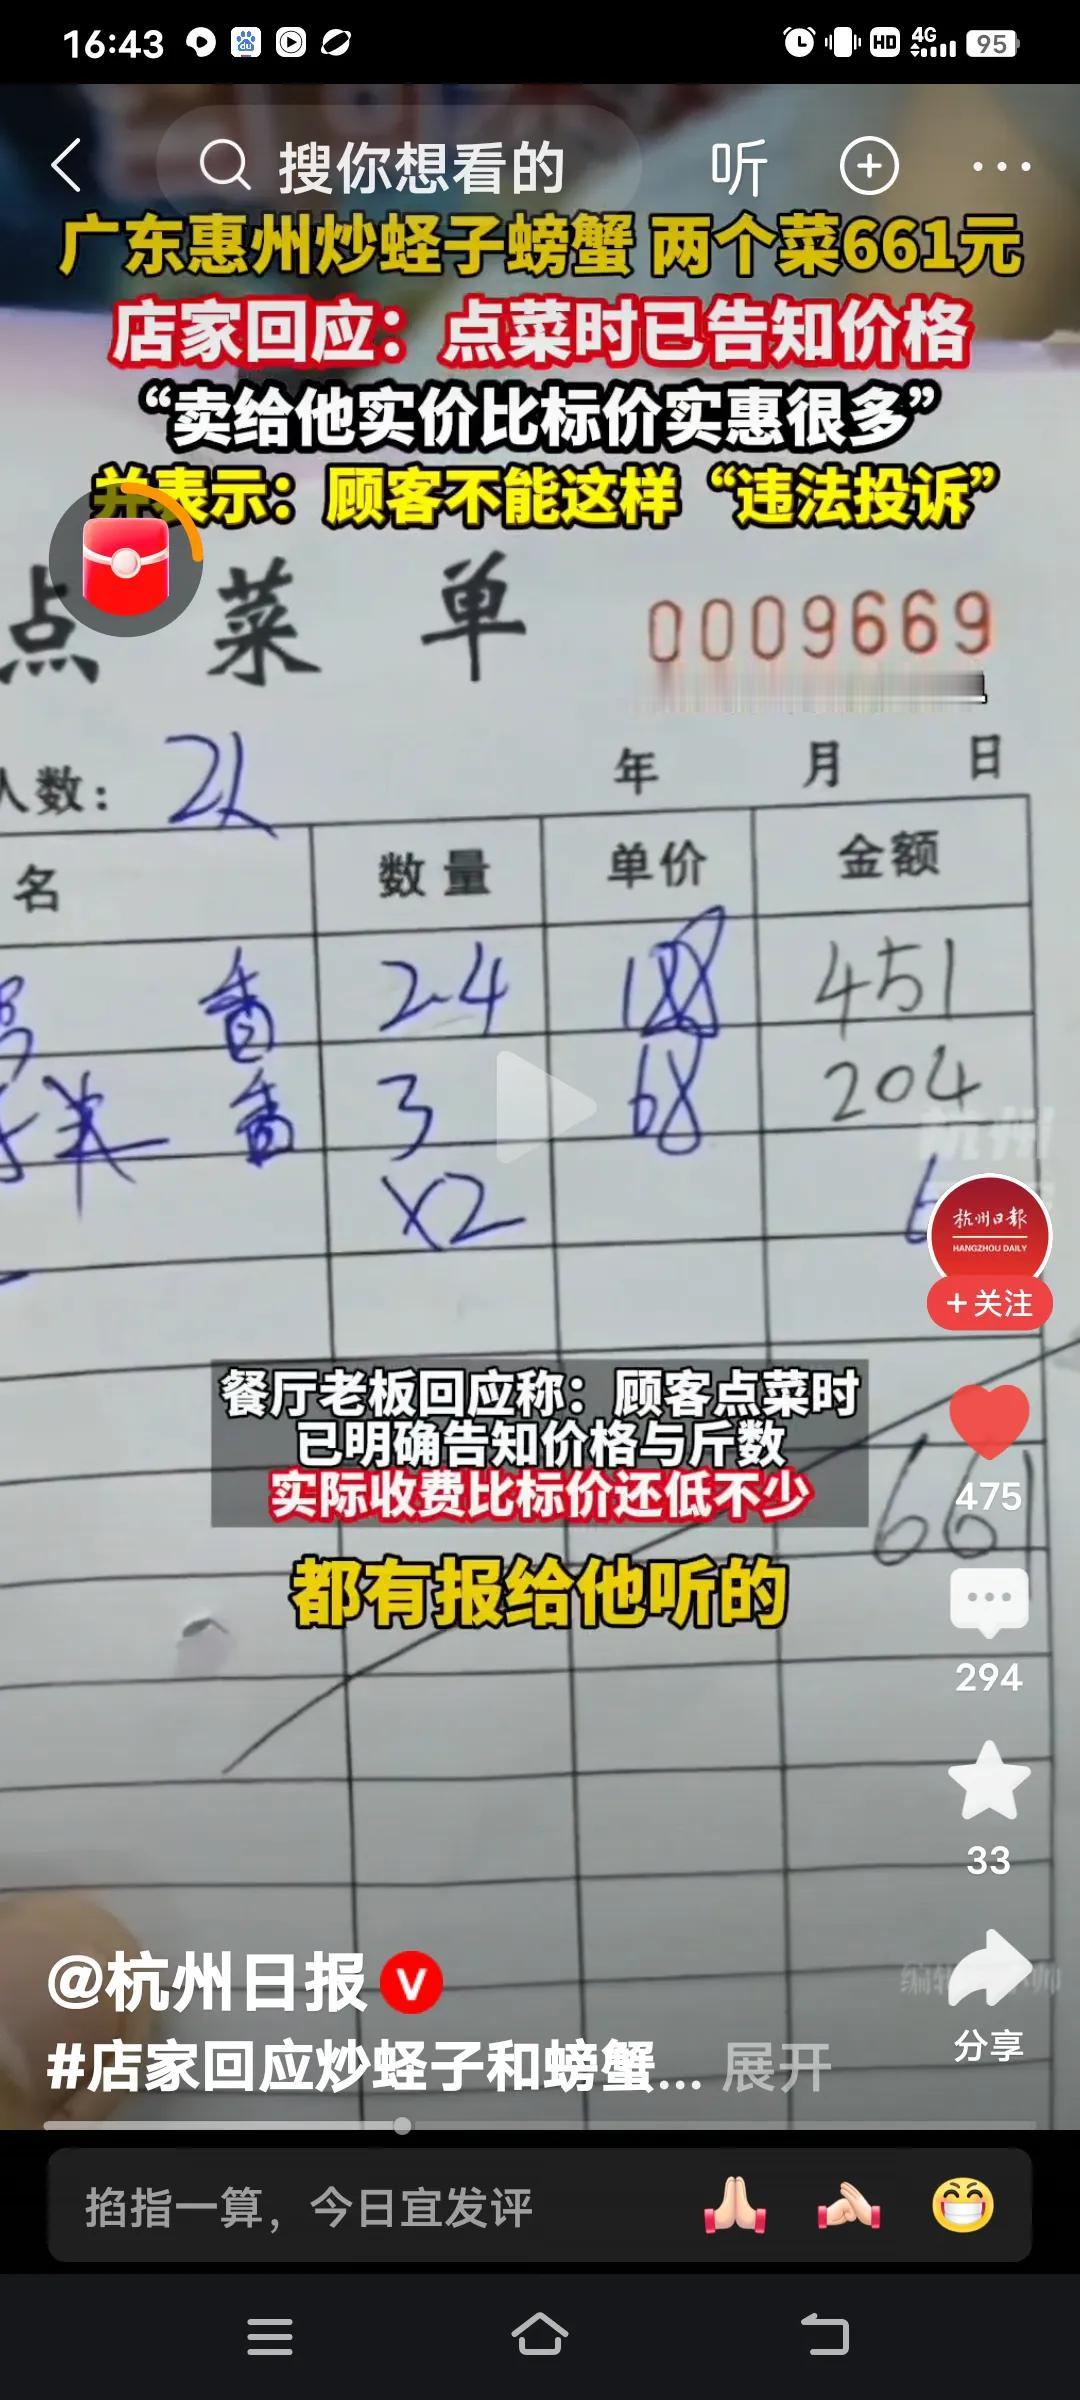 16:43
4G
HD
95
搜你想看的
听
广东惠州炒蛏子螃蟹 两个菜661元
店家回应：点菜时已告知价格
“卖给他实价比标价实惠很多”
并表示：顾客不能这样“违法投诉”
点菜单
0009669
人数：
年 月 日
名 数量 单价 金额
2.4 188 451
3 68 204
x2
杭州
杭州日报
HANGZHOU DAILY
+关注
餐厅老板回应称：顾客点菜时
已明确告知价格与斤数
实际收费比标价还低不少
661
475
都有报给他听的
294
33
@杭州日报 V
分享
#店家回应炒蛏子和螃蟹... 展开
掐指一算，今日宜发评